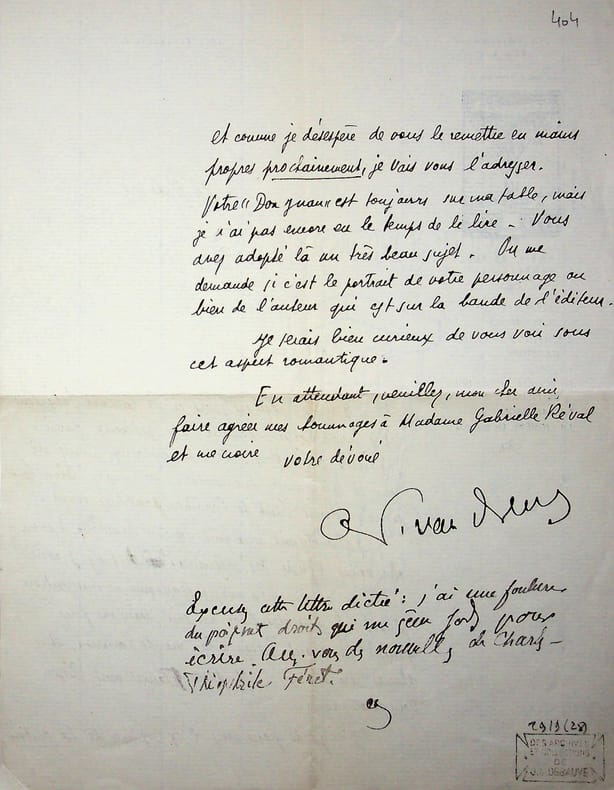 404
et comme je désespère de vous le remettre en mains
propres prochainement, je vais vous l'adresser.
Votre "Don Juan" est toujours sur ma table, mais
je n'ai pas encore eu le temps de le lire. Vous
avez adopté là un très beau sujet. On me
demande si c'est le portrait de votre personnage ou
bien de l'auteur qui est sur la bande de l'éditeur.
Je serais bien curieux de vous voir sous
cet aspect romantique.
En attendant, veuillez, mon cher ami,
faire agréer mes hommages à Madame Gabrielle Réval
et me croire votre dévoué
Excusez cette lettre dictée : j'ai une foulure
du poignet droit qui me gêne fort pour
écrire. Avez-vous des nouvelles de Charles-
Théophile Féret.
2919 (28)
DES ARCHIVES
ET COLLECTIONS
DE
J.L. DEBAUVE